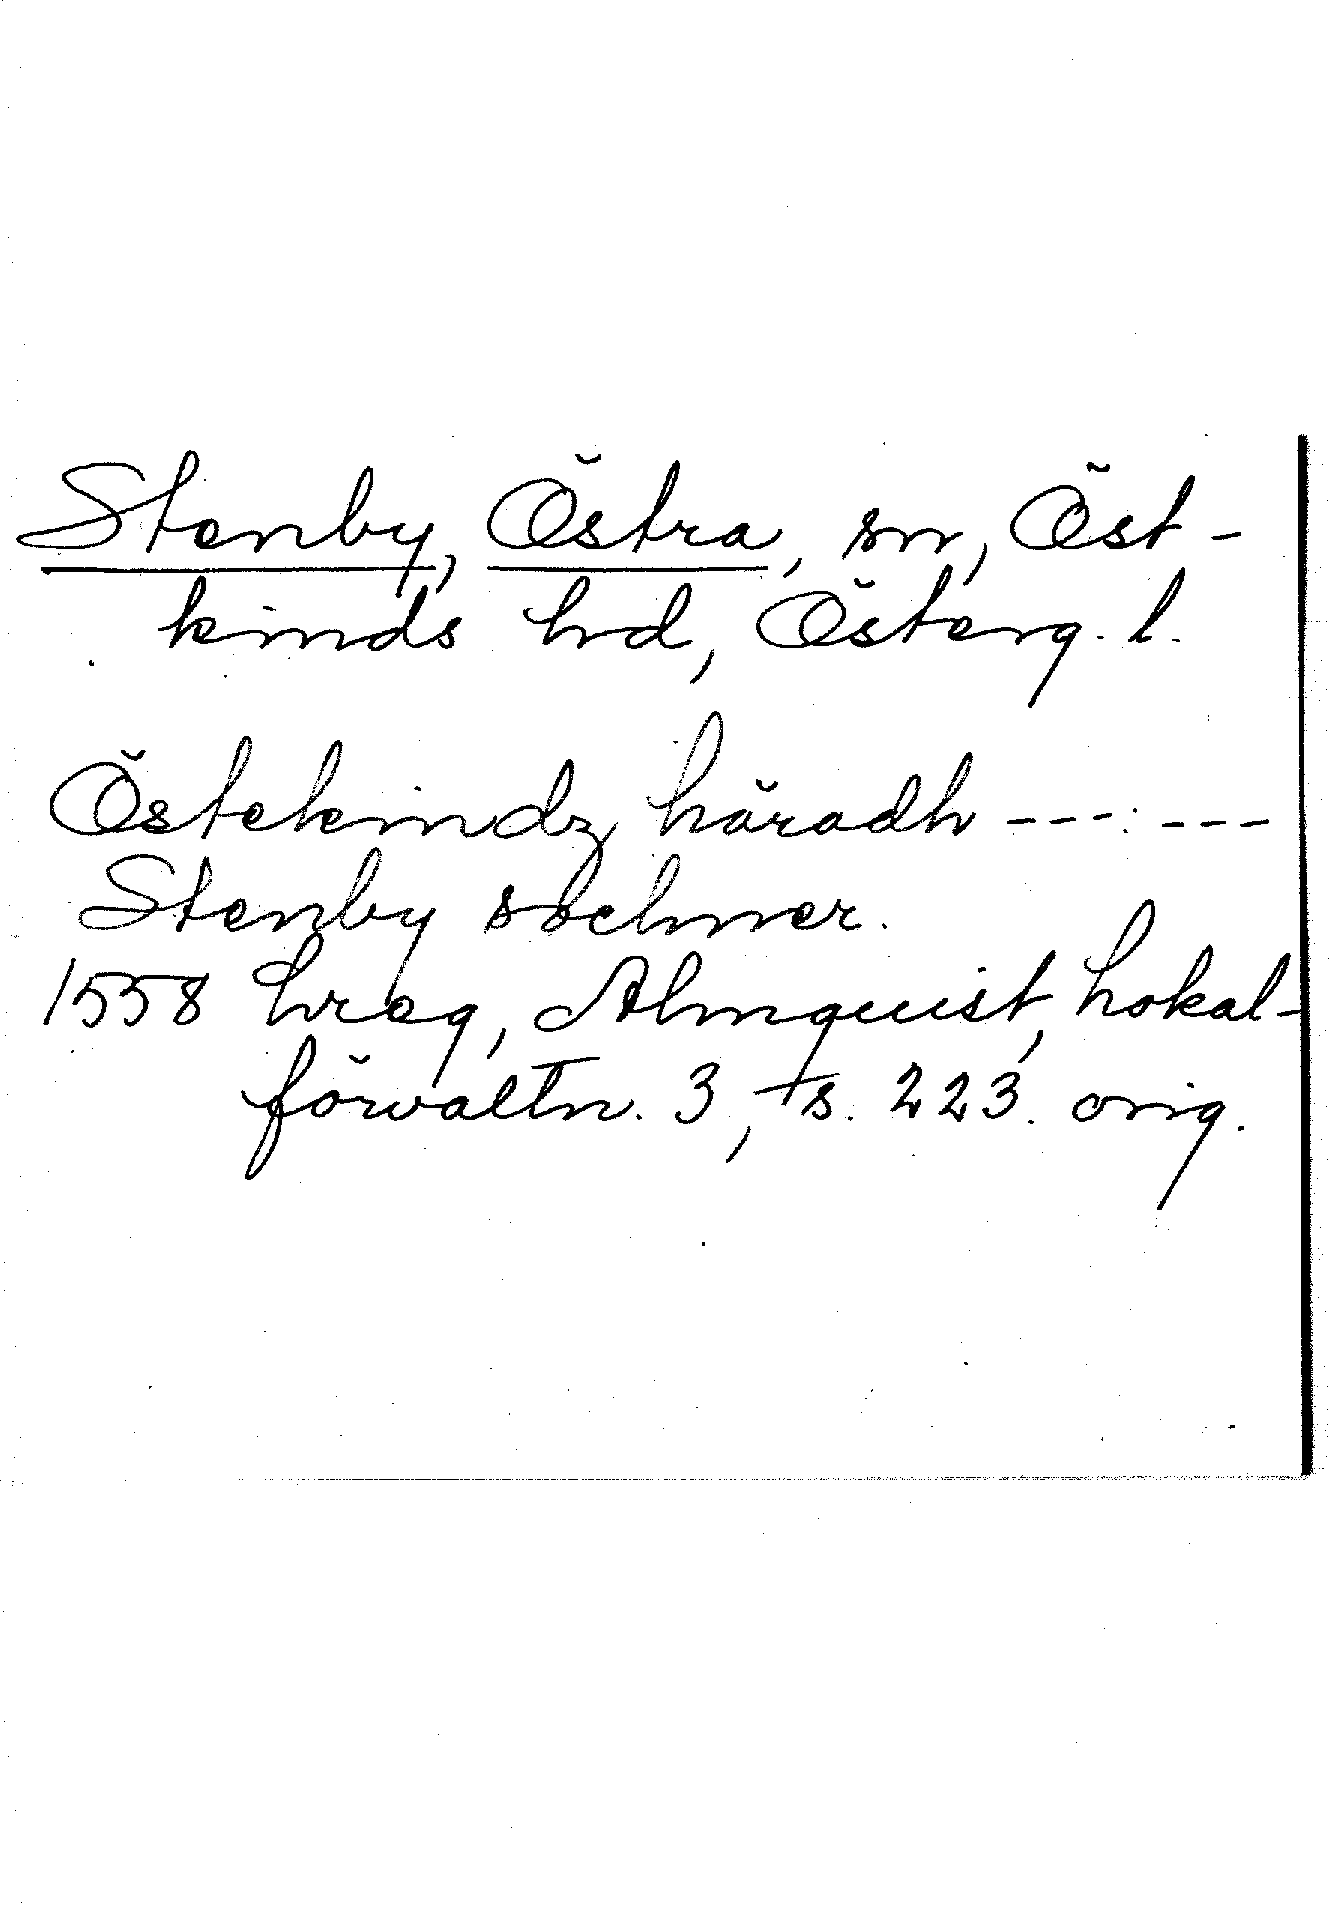 Stenby, Östra, sn, Öst-
kinds hd, Österg. l.
Östekindz häradh --- ---
Stenby sochner.
1558 hreg, Almquist, Lokal-
förvaltn. 3, s. 223. orig.